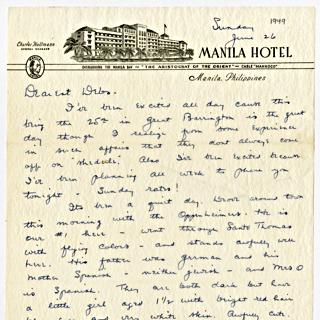 1949
Sunday
June 26
Charles Hollmann
GENERAL MANAGER
MANILA HOTEL
OVERLOOKING THE MANILA BAY — "THE ARISTOCRAT OF THE ORIENT" — CABLE "MANHOCO"
Manila, Philippines
Dearest Debs.
I've been excited all day cause this
being the 25th in Great Barrington is the great
day though I realize from some experience
in such affairs that they dont always come
off on schedule. Also I've been excited because
I've been planning all week to phone you
tonight - Sunday rates!
Its been a quiet day. Drove around town
this morning with the Oppenheimers. He is
our #1 here - went through Santo Thomas
with flying colors - and stands awfully well
here. His father was German and his
mother Spanish - neither Jewish - and Mrs O
is Spanish. They are both dark but have
a little girl aged 1 1/2 with bright red hair
and very white skin. Awfully cute.